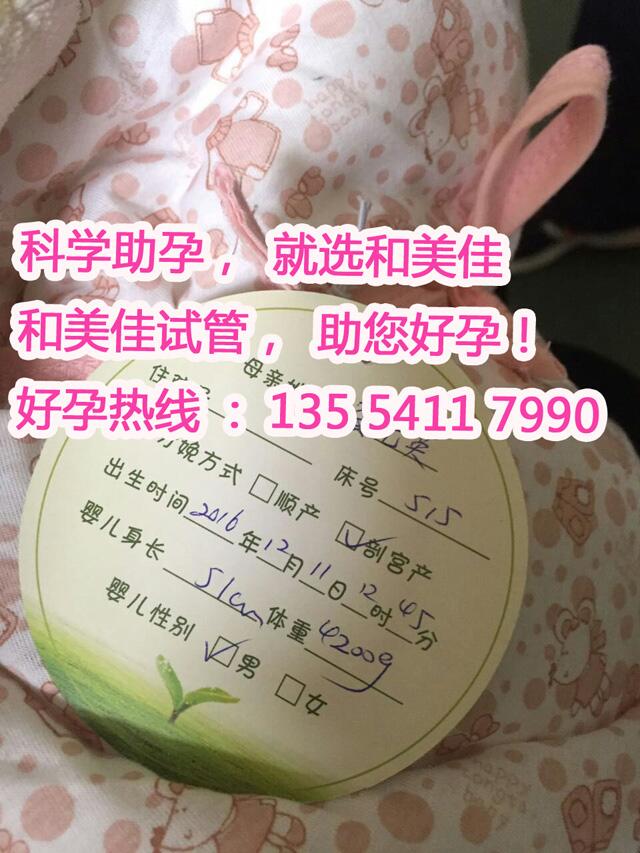 科学助孕， 就选和美佳
和美佳试管， 助您好孕！
好孕热线 ：135 5411 7990
母亲
住
床号 515
娩方式 □顺产 ☑剖宫产
出生时间 2016 年 12 月 11 日 12 时 45 分
婴儿身长 51cm 体重 4200g
婴儿性别 ☑男 □女